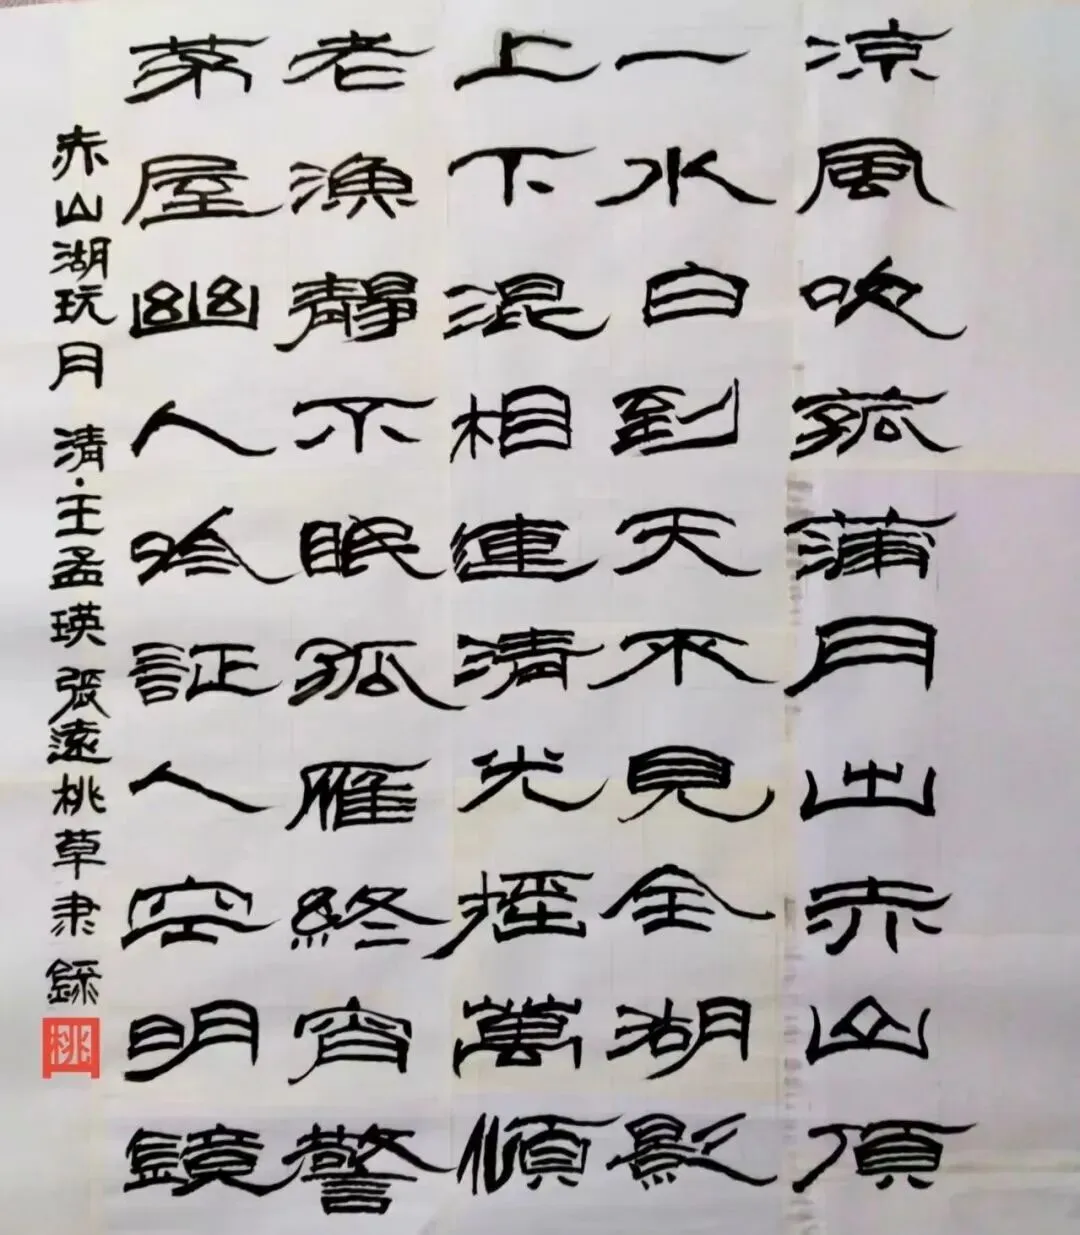 涼風吹菰蒲月出赤山頂
一水白到天不見全湖影
上下混相連清光控萬頃
老漁靜不眠孤雁終宵警
茅屋幽人吟証入空明鏡
赤山湖玩月 清·王孟瑛 張遠桃草隶錄
桃